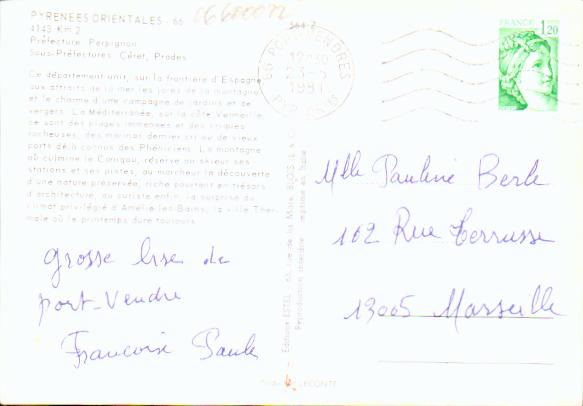 PYRENEES ORIENTALES - 66
4143 Km 2
Préfecture, Perpignan
Sous-Préfectures, Céret, Prades
Ce département unit, sur la frontière d'Espagne
aux attraits de la mer les joies de la montagne
et le charme d'une campagne de jardins et de
vergers. La Méditerranée, sur la côte Vermeille,
ce sont des plages immenses et des criques
rocheuses, des marinas dernier cri ou de vieux
ports déjà connus des Phéniciens. La montagne
où culmine le Canigou, réserve au skieur ses
stations et ses pistes, au marcheur la découverte
d'une nature préservée, riche pourtant en trésors
d'architecture, au curiste enfin, la surprise du
climat privilégié d'Amélie-les-Bains, la ville Ther-
male où le printemps dure toujours.
grosse bise de
port-Vendre
Francoise Paule
Editions ESTEL
Reproduction interdite imprimé en Italie
LECONTE
66 PORT-VENDRES
1981
FRANCE
1,20
Mlle Pauline Berle
102 Rue Terrusse
13005 Marseille